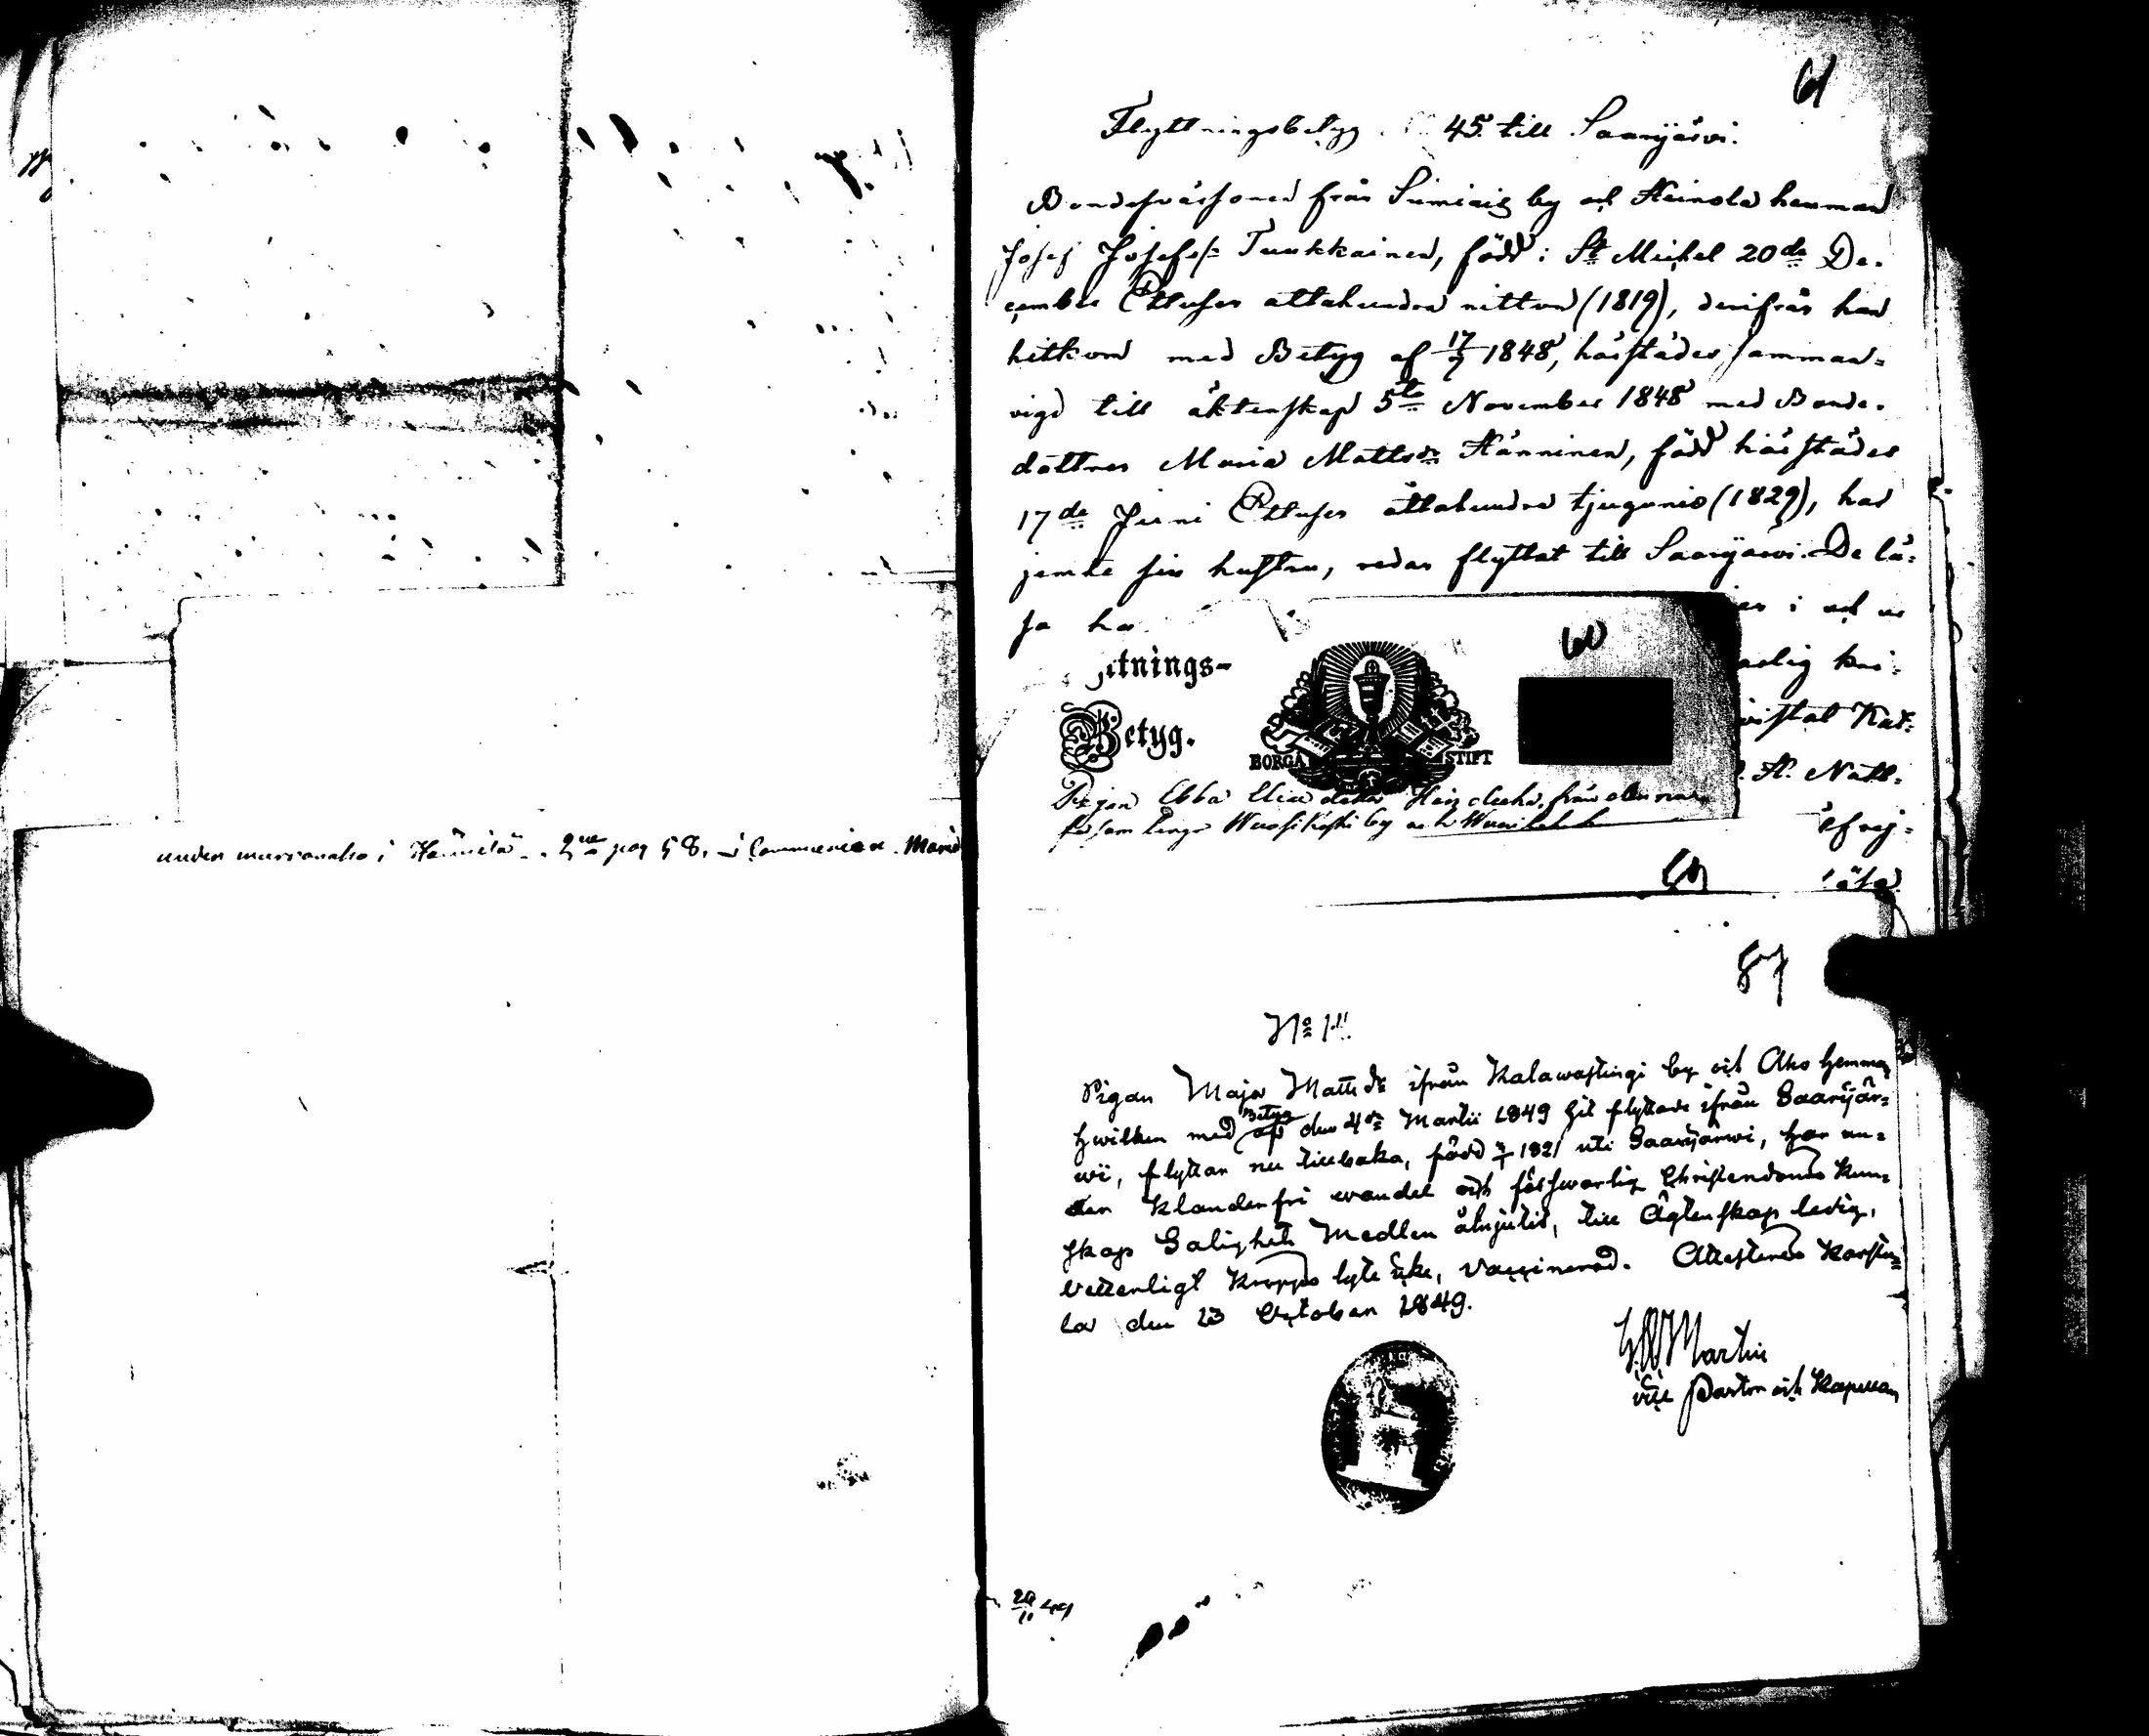 under marsvaka i Hännilä pag 58, i Communion Marie
61
Flyttningsbetyg 45. till Saarijärvi.
Bondesvåssonen från Sumiais by och Heinola hemman
Josef Josefss. Tuukkainen, född i St Michel 20de De-
cember Ettusen attahundra nitton (1819), derifrån han
hitkom med Betyg af 17/7 1848, härstädes samman-
vigd till äktenskap 5te November 1848 med Bonde-
dottren Maria Mattsdr Hänninen, född härstädes
17de Juni Ettusen åttahundra tjugonio (1829), har
jemte sin hustru, redan flyttat till Saarijärvi. De lä-
sa i och u
60
ttnings-
Betyg.
BORGÅ STIFT
Pigan Ebba från
by och
H. Natt-
87
No 1
Pigan Maja Mattsdr ifrån Kalawastingi by och Aho hemman
hwilken med Betyg af den 4de Martii 1849 hit flyttade ifrån Saarijär-
wi, flyttar nu tillbaka, född 1821 uti Saarijärwi, har un-
der klanderfri wandel och förswarlig Christendoms kun-
skap Salighets Medlen åtnjutit, till Ägtenskap ledig,
Vetterligt kropps lyte icke, Vaccinerad. Attesteras Karstu-
la den 23 October 1849.
Martin
vice Pastor och Kapellan
29/11 49